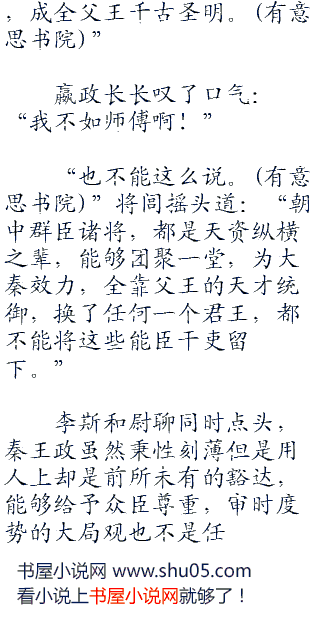 ，成全父王千古圣明。(有意
思书院)”
嬴政长长叹了口气：
“我不如师傅啊！”
“也不能这么说。(有意
思书院)”将闾摇头道：“朝
中群臣诸将，都是天资纵横
之辈，能够团聚一堂，为大
秦效力，全靠父王的天才统
御，换了任何一个君王，都
不能将这些能臣干吏留
下。”
李斯和尉聊同时点头，
秦王政虽然秉性刻薄但是用
人上却是前所未有的豁达，
能够给予众臣尊重，审时度
势的大局观也不是任
书屋小说网 www.shu05.com
看小说上书屋小说网就够了！